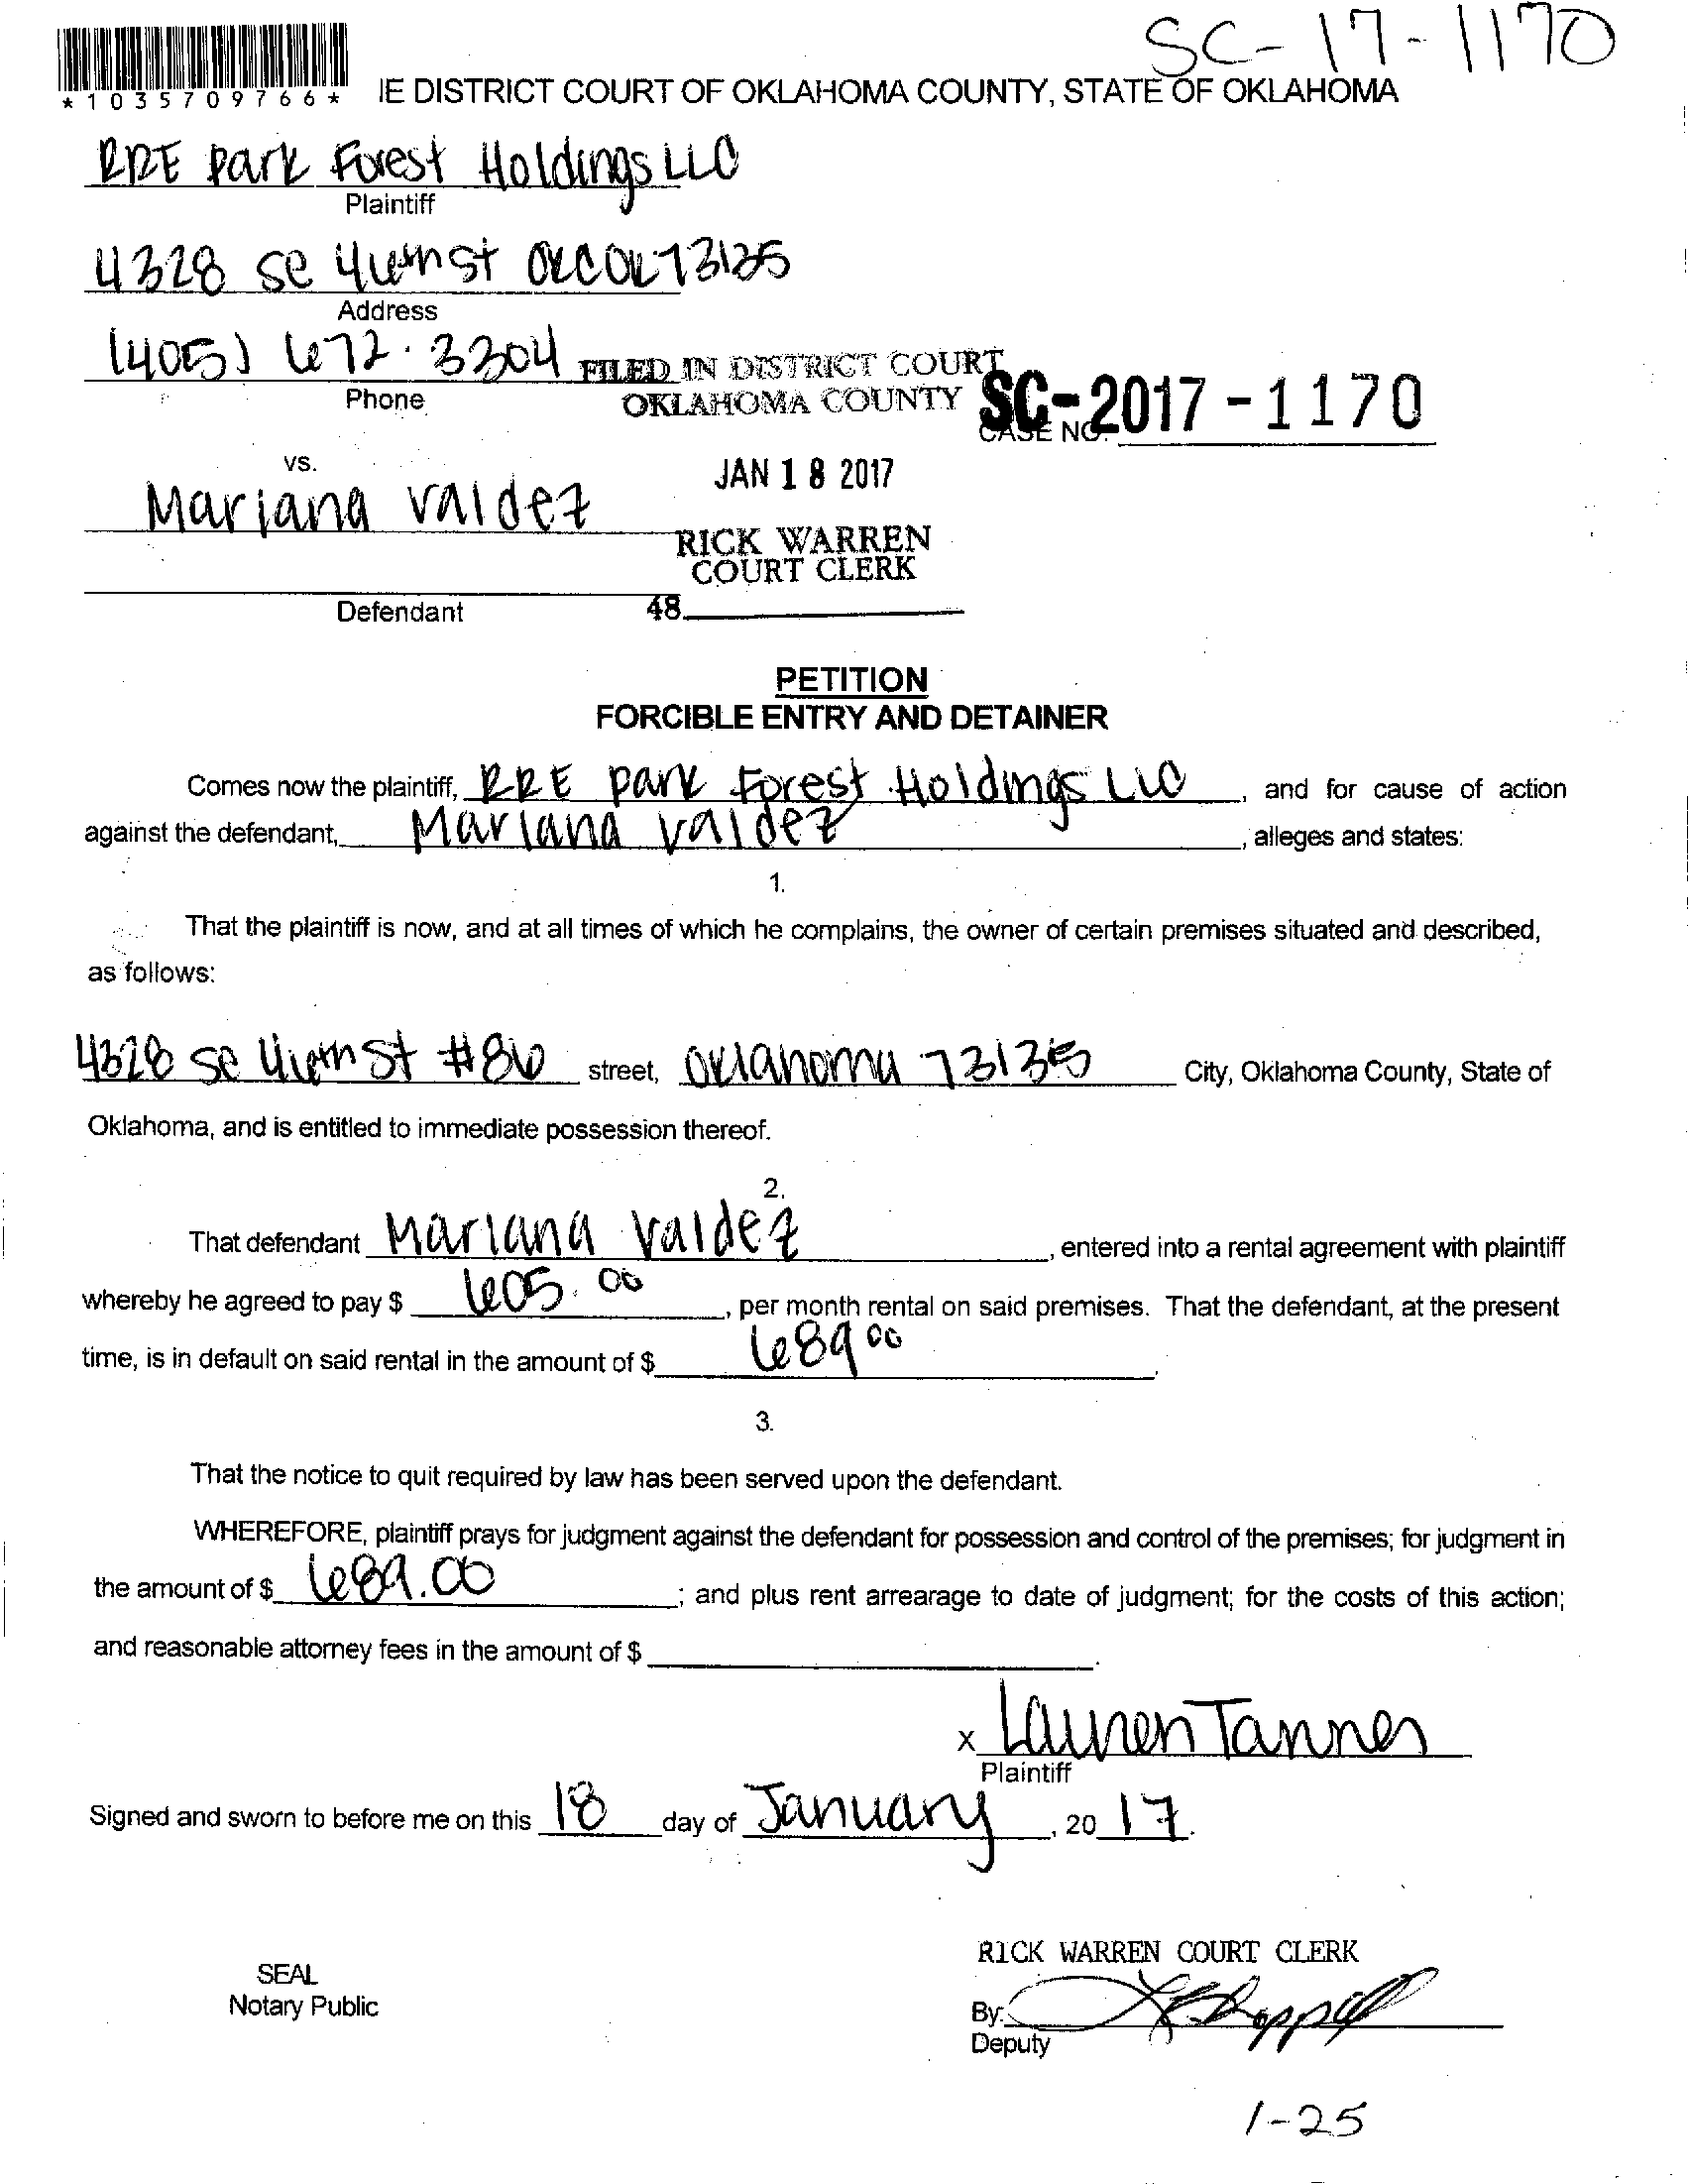 SC-17-1170
*1035709766*
IE DISTRICT COURT OF OKLAHOMA COUNTY, STATE OF OKLAHOMA
RRE Park Forest Holdings LLC
Plaintiff
4328 se 46th st OKC OK 73135
Address
(405) 672.3304
FILED IN DISTRICT COURT
Phone
OKLAHOMA COUNTY
SC-2017-1170
CASE NO.
vs.
JAN 18 2017
Mariana Valdez
RICK WARREN
COURT CLERK
Defendant
48
PETITION
FORCIBLE ENTRY AND DETAINER
Comes now the plaintiff, RRE Park Forest Holdings LLC, and for cause of action
against the defendant, Mariana Valdez, alleges and states:
1.
That the plaintiff is now, and at all times of which he complains, the owner of certain premises situated and described,
as follows:
4328 se 46th St #86 street, Oklahoma 73135 City, Oklahoma County, State of
Oklahoma, and is entitled to immediate possession thereof.
2.
That defendant Mariana Valdez, entered into a rental agreement with plaintiff
whereby he agreed to pay $ 605.00, per month rental on said premises. That the defendant, at the present
time, is in default on said rental in the amount of $ 689 00.
3.
That the notice to quit required by law has been served upon the defendant.
WHEREFORE, plaintiff prays for judgment against the defendant for possession and control of the premises; for judgment in
the amount of $ 689.00; and plus rent arrearage to date of judgment; for the costs of this action;
and reasonable attorney fees in the amount of $ .
x Lauren Tanner
Plaintiff
Signed and sworn to before me on this 18 day of January, 20 17.
RICK WARREN COURT CLERK
SEAL
Notary Public
By:
Deputy
1-25